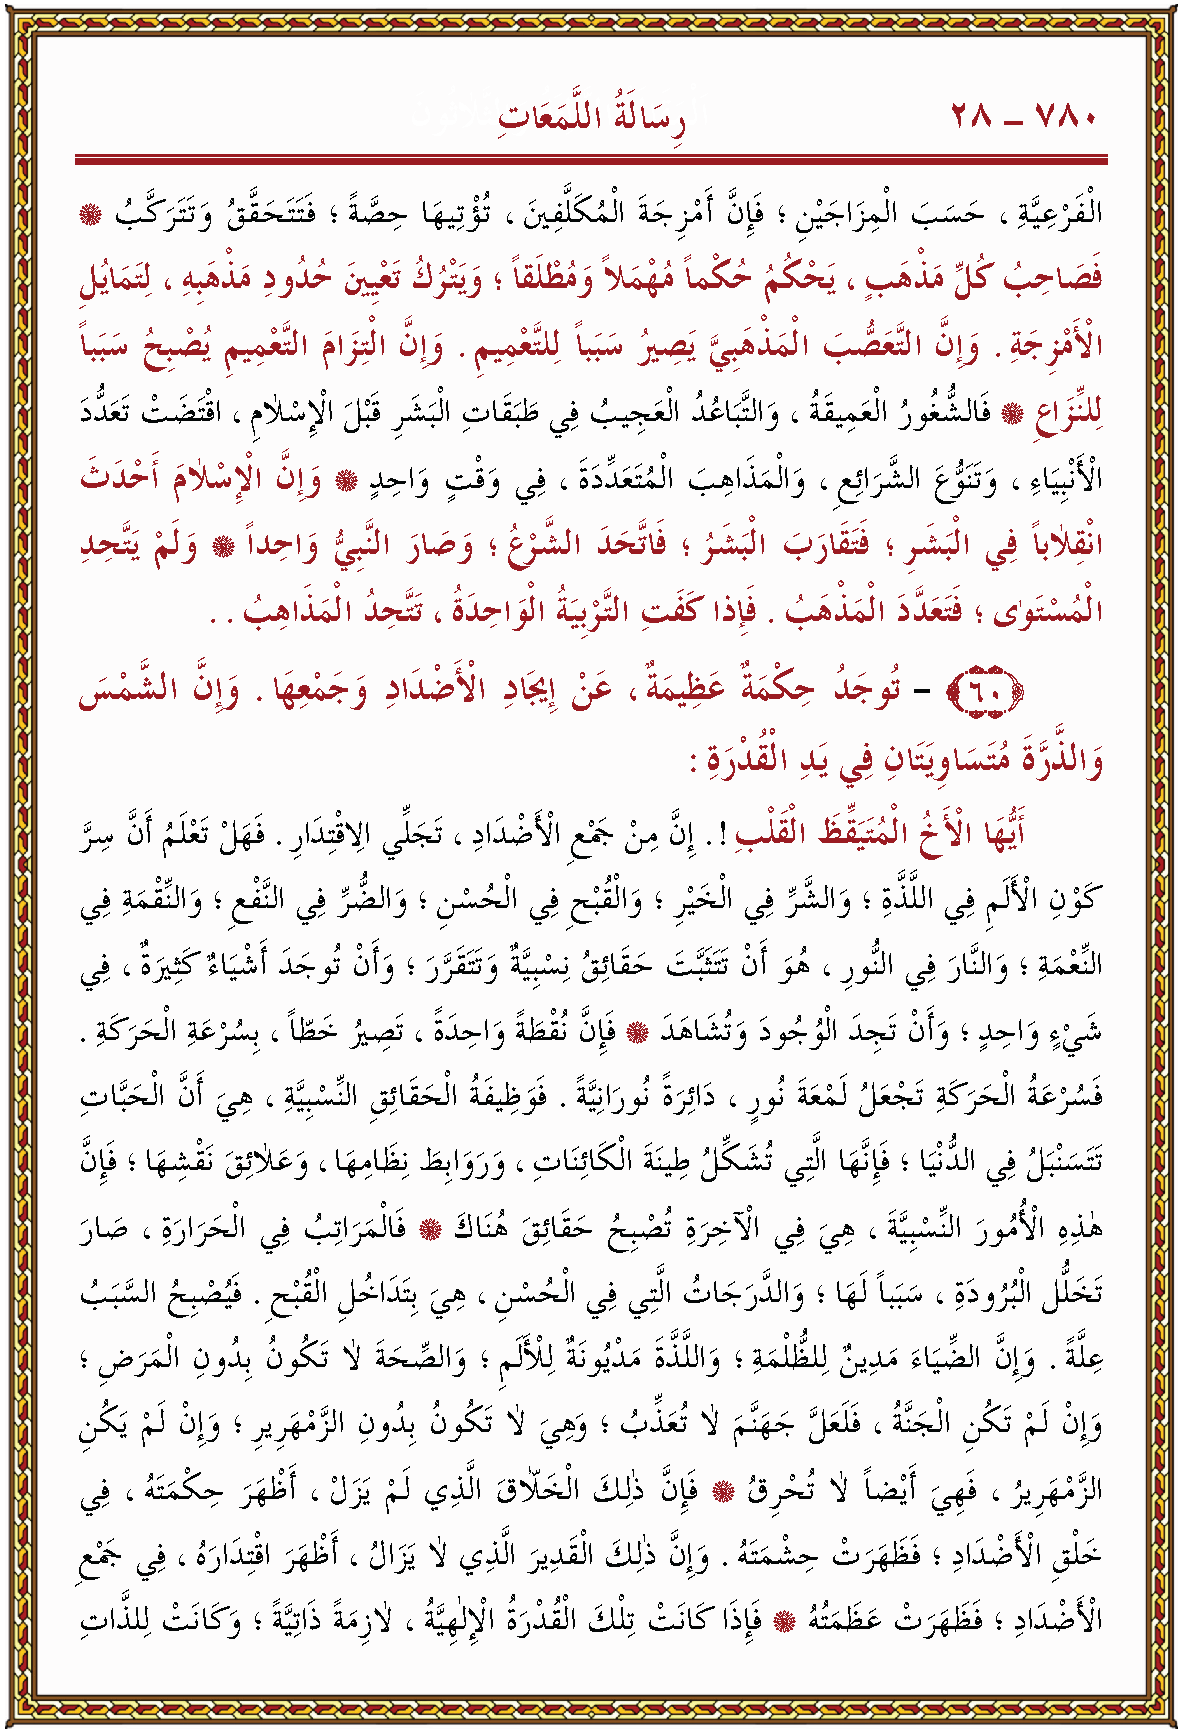 ٢٨ – ٧٨٠ رِسَالَةُ اللَّمَعَاتِ
الْفَرْعِيَّةِ ، حَسَبَ الْمِزَاجَيْنِ ؛ فَإِنَّ أَمْزِجَةَ الْمُكَلَّفِينَ ، تُؤْتِيهَا حِصَّةً ؛ فَتَتَحَقَّقُ وَتَتَرَكَّبُ
فَصَاحِبُ كُلِّ مَذْهَبٍ ، يَحْكُمُ حُكْماً مُهْمَلاً وَمُطْلَقاً ؛ وَيَتْرُكُ تَعْيِينَ حُدُودِ مَذْهَبِهِ ، لِتَمَايُلِ
الْأَمْزِجَةِ . وَإِنَّ التَّعَصُّبَ الْمَذْهَبِيَّ يَصِيرُ سَبَباً لِلتَّعْمِيمِ . وَإِنَّ الْتِزَامَ التَّعْمِيمِ يُصْبِحُ سَبَباً
لِلنِّزَاعِ فَالشُّغُورُ الْعَمِيقَةُ ، وَالتَّبَاعُدُ الْعَجِيبُ فِي طَبَقَاتِ الْبَشَرِ قَبْلَ الْإِسْلَامِ ، اقْتَضَتْ تَعَدُّدَ
الْأَنْبِيَاءِ ، وَتَنَوُّعَ الشَّرَائِعِ ، وَالْمَذَاهِبَ الْمُتَعَدِّدَةَ ، فِي وَقْتٍ وَاحِدٍ وَإِنَّ الْإِسْلَامَ أَحْدَثَ
انْقِلَاباً فِي الْبَشَرِ ؛ فَتَقَارَبَ الْبَشَرُ ؛ فَاتَّحَدَ الشَّرْعُ ؛ وَصَارَ النَّبِيُّ وَاحِداً وَلَمْ يَتَّحِدِ
الْمُسْتَوَى ؛ فَتَعَدَّدَ الْمَذْهَبُ . فَإِذَا كَفَتِ التَّرْبِيَةُ الْوَاحِدَةُ ، تَتَّحِدُ الْمَذَاهِبُ . .
﴿٦٠﴾ – تُوجَدُ حِكْمَةٌ عَظِيمَةٌ ، عَنْ إِيجَادِ الْأَضْدَادِ وَجَمْعِهَا . وَإِنَّ الشَّمْسَ
وَالذَّرَّةَ مُتَسَاوِيَتَانِ فِي يَدِ الْقُدْرَةِ :
أَيُّهَا الْأَخُ الْمُتَيَقِّظَ الْقَلْبِ ! . إِنَّ مِنْ جَمْعِ الْأَضْدَادِ ، تَجَلِّي الِاقْتِدَارِ . فَهَلْ تَعْلَمُ أَنَّ سِرَّ
كَوْنِ الْأَلَمِ فِي اللَّذَّةِ ؛ وَالشَّرِّ فِي الْخَيْرِ ؛ وَالْقُبْحِ فِي الْحُسْنِ ؛ وَالضُّرِّ فِي النَّفْعِ ؛ وَالنِّقْمَةِ فِي
النِّعْمَةِ ؛ وَالنَّارَ فِي النُّورِ ، هُوَ أَنْ تَتَثَبَّتَ حَقَائِقُ نِسْبِيَّةٌ وَتَتَقَرَّرَ ؛ وَأَنْ تُوجَدَ أَشْيَاءٌ كَثِيرَةٌ ، فِي
شَيْءٍ وَاحِدٍ ؛ وَأَنْ تَجِدَ الْوُجُودَ وَتُشَاهَدَ فَإِنَّ نُقْطَةً وَاحِدَةً ، تَصِيرُ خَطّاً ، بِسُرْعَةِ الْحَرَكَةِ .
فَسُرْعَةُ الْحَرَكَةِ تَجْعَلُ لَمْعَةَ نُورٍ ، دَائِرَةً نُورَانِيَّةً . فَوَظِيفَةُ الْحَقَائِقِ النِّسْبِيَّةِ ، هِيَ أَنَّ الْحَبَّاتِ
تَتَسَنْبَلُ فِي الدُّنْيَا ؛ فَإِنَّهَا الَّتِي تُشَكِّلُ طِينَةَ الْكَائِنَاتِ ، وَرَوَابِطَ نِظَامِهَا ، وَعَلَائِقَ نَقْشِهَا ؛ فَإِنَّ
هٰذِهِ الْأُمُورَ النِّسْبِيَّةَ ، هِيَ فِي الْآخِرَةِ تُصْبِحُ حَقَائِقَ هُنَاكَ فَالْمَرَاتِبُ فِي الْحَرَارَةِ ، صَارَ
تَخَلُّلُ الْبُرُودَةِ ، سَبَباً لَهَا ؛ وَالدَّرَجَاتُ الَّتِي فِي الْحُسْنِ ، هِيَ بِتَدَاخُلِ الْقُبْحِ . فَيُصْبِحُ السَّبَبُ
عِلَّةً . وَإِنَّ الضِّيَاءَ مَدِينٌ لِلظُّلْمَةِ ؛ وَاللَّذَّةَ مَدْيُونَةٌ لِلْأَلَمِ ؛ وَالصِّحَةَ لَا تَكُونُ بِدُونِ الْمَرَضِ ؛
وَإِنْ لَمْ تَكُنِ الْجَنَّةُ ، فَلَعَلَّ جَهَنَّمَ لَا تُعَذِّبُ ؛ وَهِيَ لَا تَكُونُ بِدُونِ الزَّمْهَرِيرِ ؛ وَإِنْ لَمْ يَكُنِ
الزَّمْهَرِيرُ ، فَهِيَ أَيْضاً لَا تُحْرِقُ فَإِنَّ ذٰلِكَ الْخَلَّاقَ الَّذِي لَمْ يَزَلْ ، أَظْهَرَ حِكْمَتَهُ ، فِي
خَلْقِ الْأَضْدَادِ ؛ فَظَهَرَتْ حِشْمَتُهُ . وَإِنَّ ذٰلِكَ الْقَدِيرَ الَّذِي لَا يَزَالُ ، أَظْهَرَ اقْتِدَارَهُ ، فِي جَمْعِ
الْأَضْدَادِ ؛ فَظَهَرَتْ عَظَمَتُهُ فَإِذَا كَانَتْ تِلْكَ الْقُدْرَةُ الْإِلٰهِيَّةُ ، لَازِمَةً ذَاتِيَّةً ؛ وَكَانَتْ لِلذَّاتِ